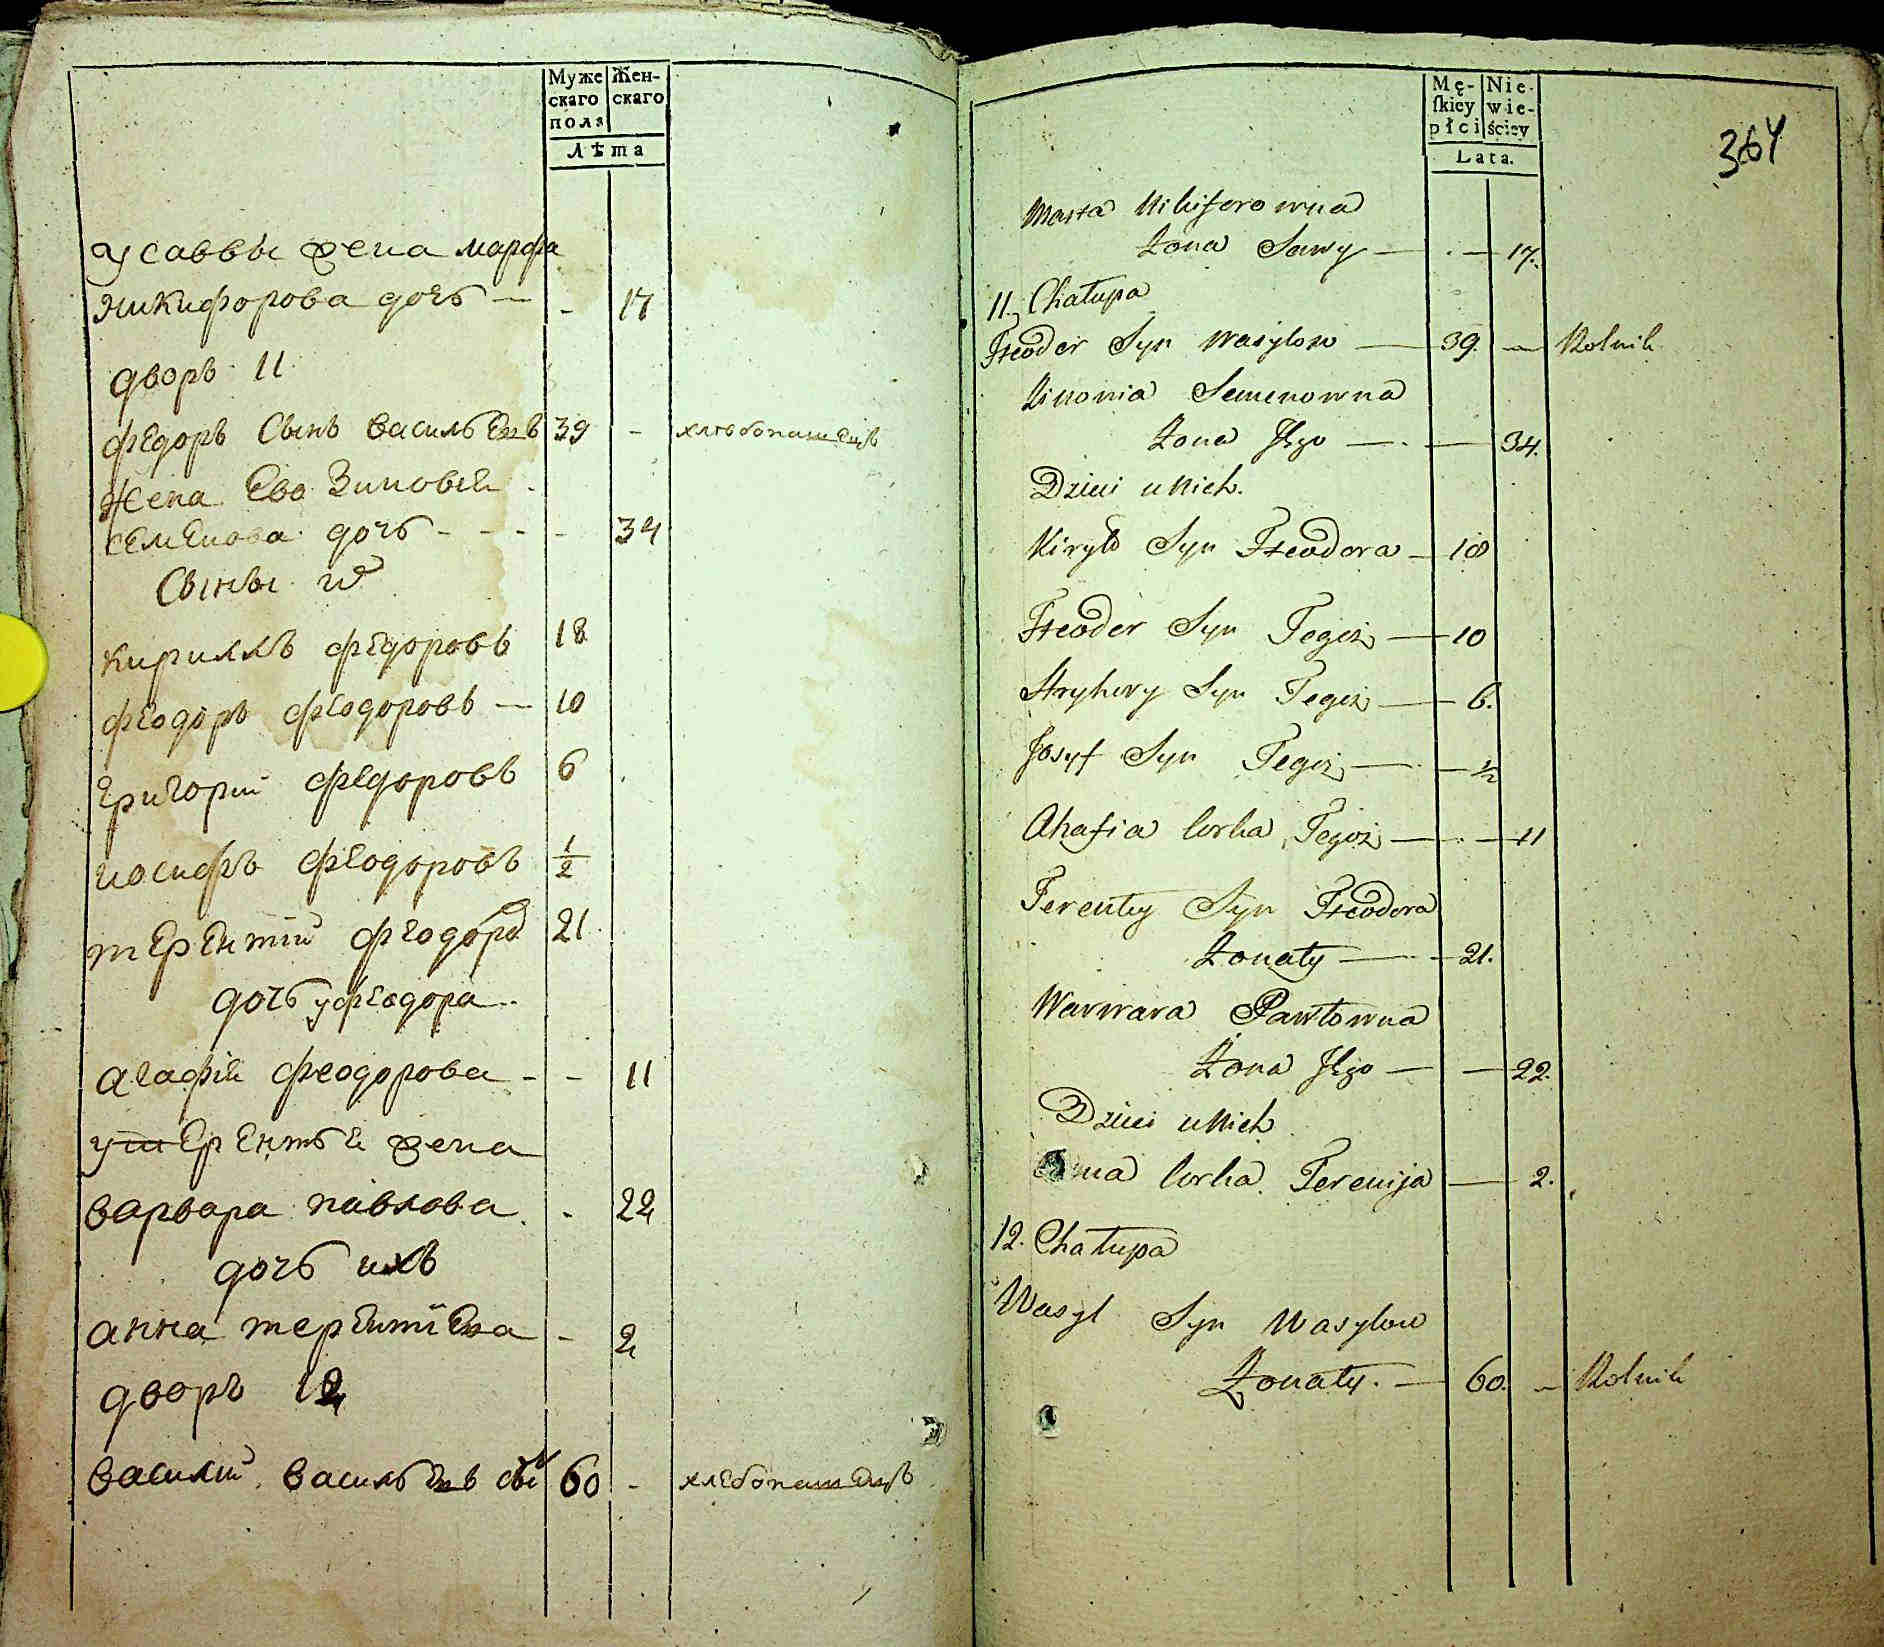 Муже
скаго
пола
Жен-
скаго
Лѣта
у саввы жена марфа
никифорова дочь — - 17
дворъ 11
федоръ сынъ васильевъ 39 - хлебопашецъ
жена Ево Зиновея
семенова дочь - - - - 34
Сыны их
кириллъ федоровъ 18
феодоръ феодоровъ — 10
григорий федоровъ 6
иосифъ феодоровъ 1/2
терентий феодоров 21
дочь у феодора
агафия феодорова - - 11
у терентья жена
варвара павлова - 22
дочь ихъ
анна терентиева - 2
дворъ 12
василий васильевъ сы 60 - хлебопашецъ
Mę-
ſkiey
płci
Nie-
wie-
ściey
Lata.
364
Marta Nikiforowna
Żona Sawy — - — 17.
11. Chałupa
Fteoder Syn Wasylow — 39. — Rolnik
Zinowia Semenowna
Żona Jego — - — 34.
Dzieci u Nich.
Kiryło Syn Fteodora — 18
Fteoder Syn Tegoż — 10
Hryhory Syn Tegoż — 6.
Josyf Syn Tegoż — 1/2
Ahafia Corka Tegoż — - — 11
Terenty Syn Fteodora
Żonaty — 21.
Warwara Pawłowna
Żona Jego — — 22.
Dzieci u Nich
Corka Terencija — 2.
12. Chałupa
Wasyl Syn Wasylow
Żonaty. — 60. — Rolnik